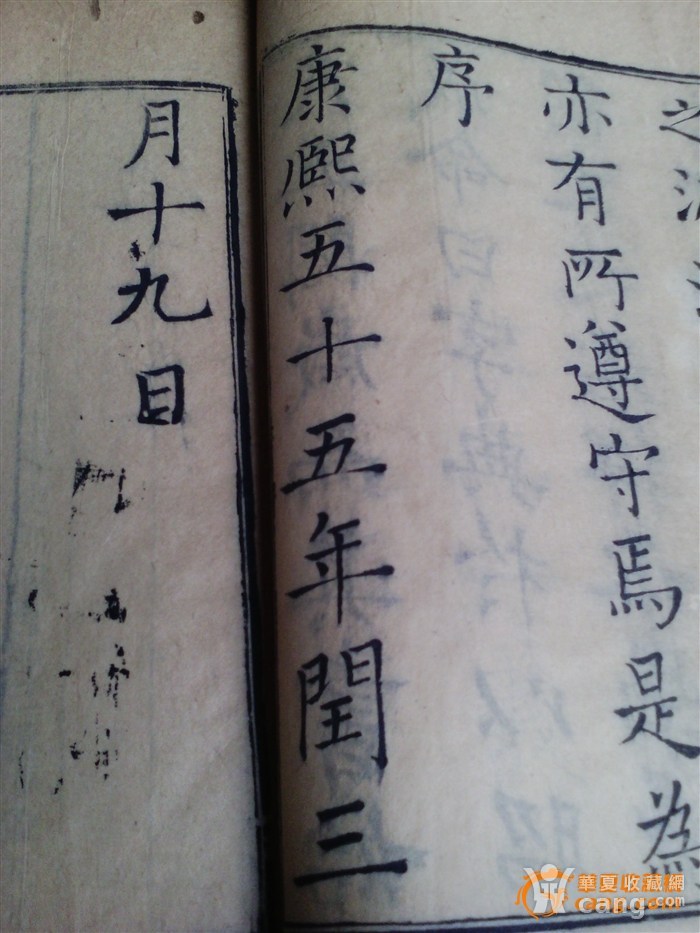 之流
亦有所遵守焉是為
序
康熙五十五年閏三
月十九日
華夏收藏網
cang.com